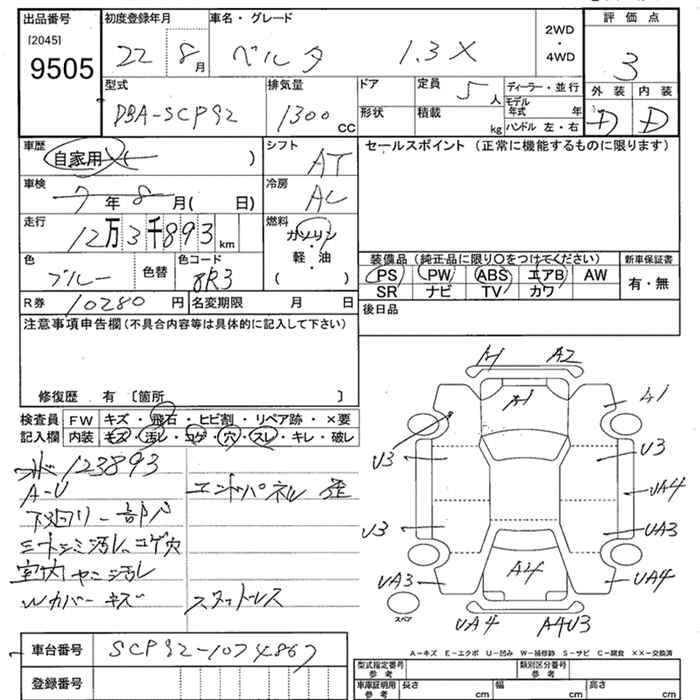 出品番号 初度登録年月 車名・グレード 2WD・4WD 評価点
[2045]
9505 22 8月 ベルタ 1.3X 3
型式 排気量 ドア 定員 5人 ディーラー・並行 外装 内装
DBA-SCP92 1300cc 形状 積載 kg モデル年式 年 D D
ハンドル 左・右
車歴 シフト セールスポイント (正常に機能するものに限ります)
自家用 ) AT
車検 冷房
7年 8月( 日) AC
走行 燃料
12万3千893km ガソリン・軽・油
( )
色 色替 色コード 装備品 (純正品に限り○をつけてください) 新車保証書
ブルー 8R3 PS PW ABS エアB AW 有・無
SR ナビ TV カワ
R券 10280円 名変期限 月 日 後日品
注意事項申告欄(不具合内容等は具体的に記入して下さい)
修復歴 有 〔箇所 〕
検査員記入欄 FW キズ・飛石・ヒビ割・リペア跡・×要
内装 キズ・汚レ・コゲ・穴・スレ・キレ・破レ
123893
A-U エンドパネル 歪
下廻リ一部サビ
シートシミ汚レ、コゲ穴
室内ヤニ汚レ
Wカバーキズ スタッドレス
A1 A2
A1 A1
U3 U3
UA4
U3 UA3
UA3 A4 UA4
スペア UA4 A4U3
車台番号 SCP92-1074867
登録番号
A-キズ E-エクボ U-凹み W-補修跡 S-サビ C-腐食 ××-交換済
型式指定番号 参考 類別区分番号 参考
車庫証明用 参考 長さ cm 幅 cm 高さ cm